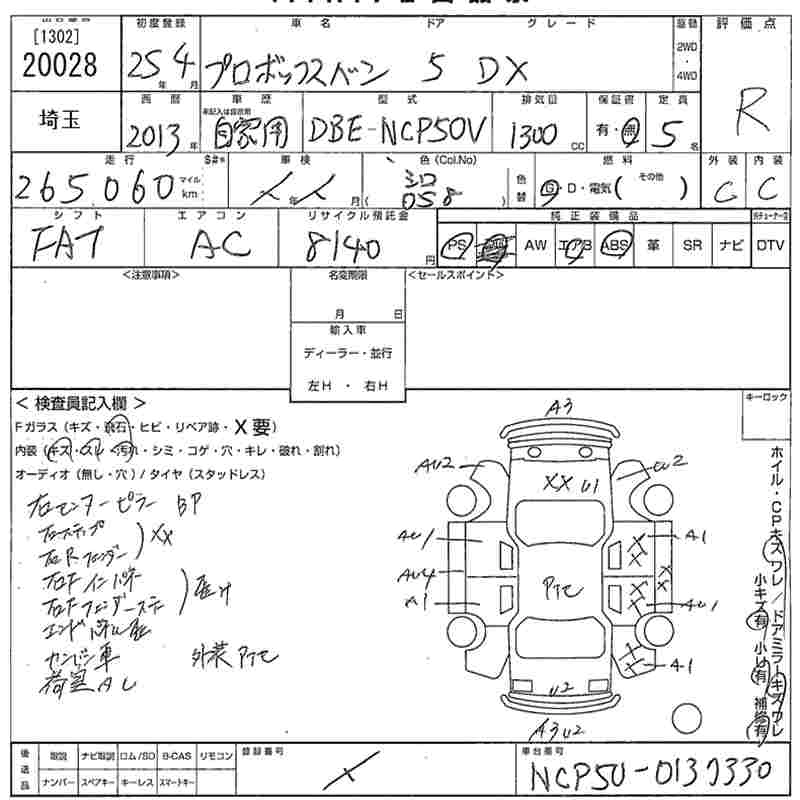 [1302]
20028
初度登録
25 年 4 月
車名
プロボックスバン
ドア
5
グレード
DX
駆動
2WD
・
4WD
評価点
R
埼玉
西暦
2013 年
車歴
未記入は自家用
自家用
型式
DBE-NCP50V
排気量
1300 CC
保証書
有・無
定員
5 名
走行
265060 マイル km
S#*
車検
年 月
色 (Col.No)
シロ
058
色替
燃料
G・D・電気( その他 )
外装
C
内装
C
シフト
FAT
エアコン
AC
リサイクル預託金
8140 円
純正装備品
PS
AW
エアB
ABS
革
SR
ナビ
DTV
<注意事項>
名変期限
月 日
輸入車
ディーラー・並行
左H ・ 右H
<セールスポイント>
<検査員記入欄>
Fガラス (キズ・飛石・ヒビ・リペア跡・X要)
内装 (キズ・スレ・汚れ・シミ・コゲ・穴・キレ・破れ・割れ)
オーディオ (無し・穴) / タイヤ (スタッドレス)
右センターピラー BP
右ステップ
右Rフェンダー
XX
右Fインパネ
曲げ
エンドパネル
外装 PTC
荷室 AL
キーロック
A3
AU2
XX U1
U2
AU1
A1
AU4
PTC
A1
AU1
A1
U2
A3 U2
ホイル・CPキズ ワレ / ドアミラーキズ ワレ
小キズ有 小凹有 補修有
後送品
取説
ナビ取説
ロム/SD
B-CAS
リモコン
ナンバー
スペアキー
キーレス
スマートキー
登録番号
車台番号
NCP50-0137330